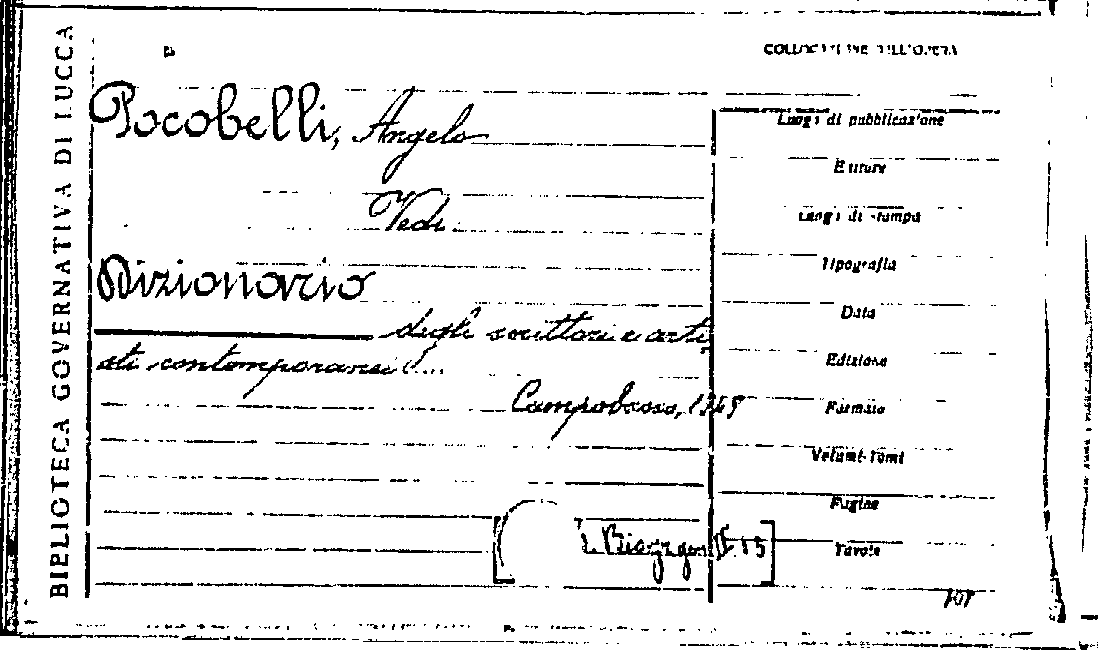 BIBLIOTECA GOVERNATIVA DI LUCCA
COLLOCAZIONE DELL'OPERA
Pocobelli, Angelo
Vedi
Dizionario
degli scrittori e arti
sti contemporanei ....
Campobasso,
Luogo di pubblicazione
Editore
Luogo di stampa
Tipografia
Data
Edizione
Formato
Volumi-Tomi
Pagine
Tavole